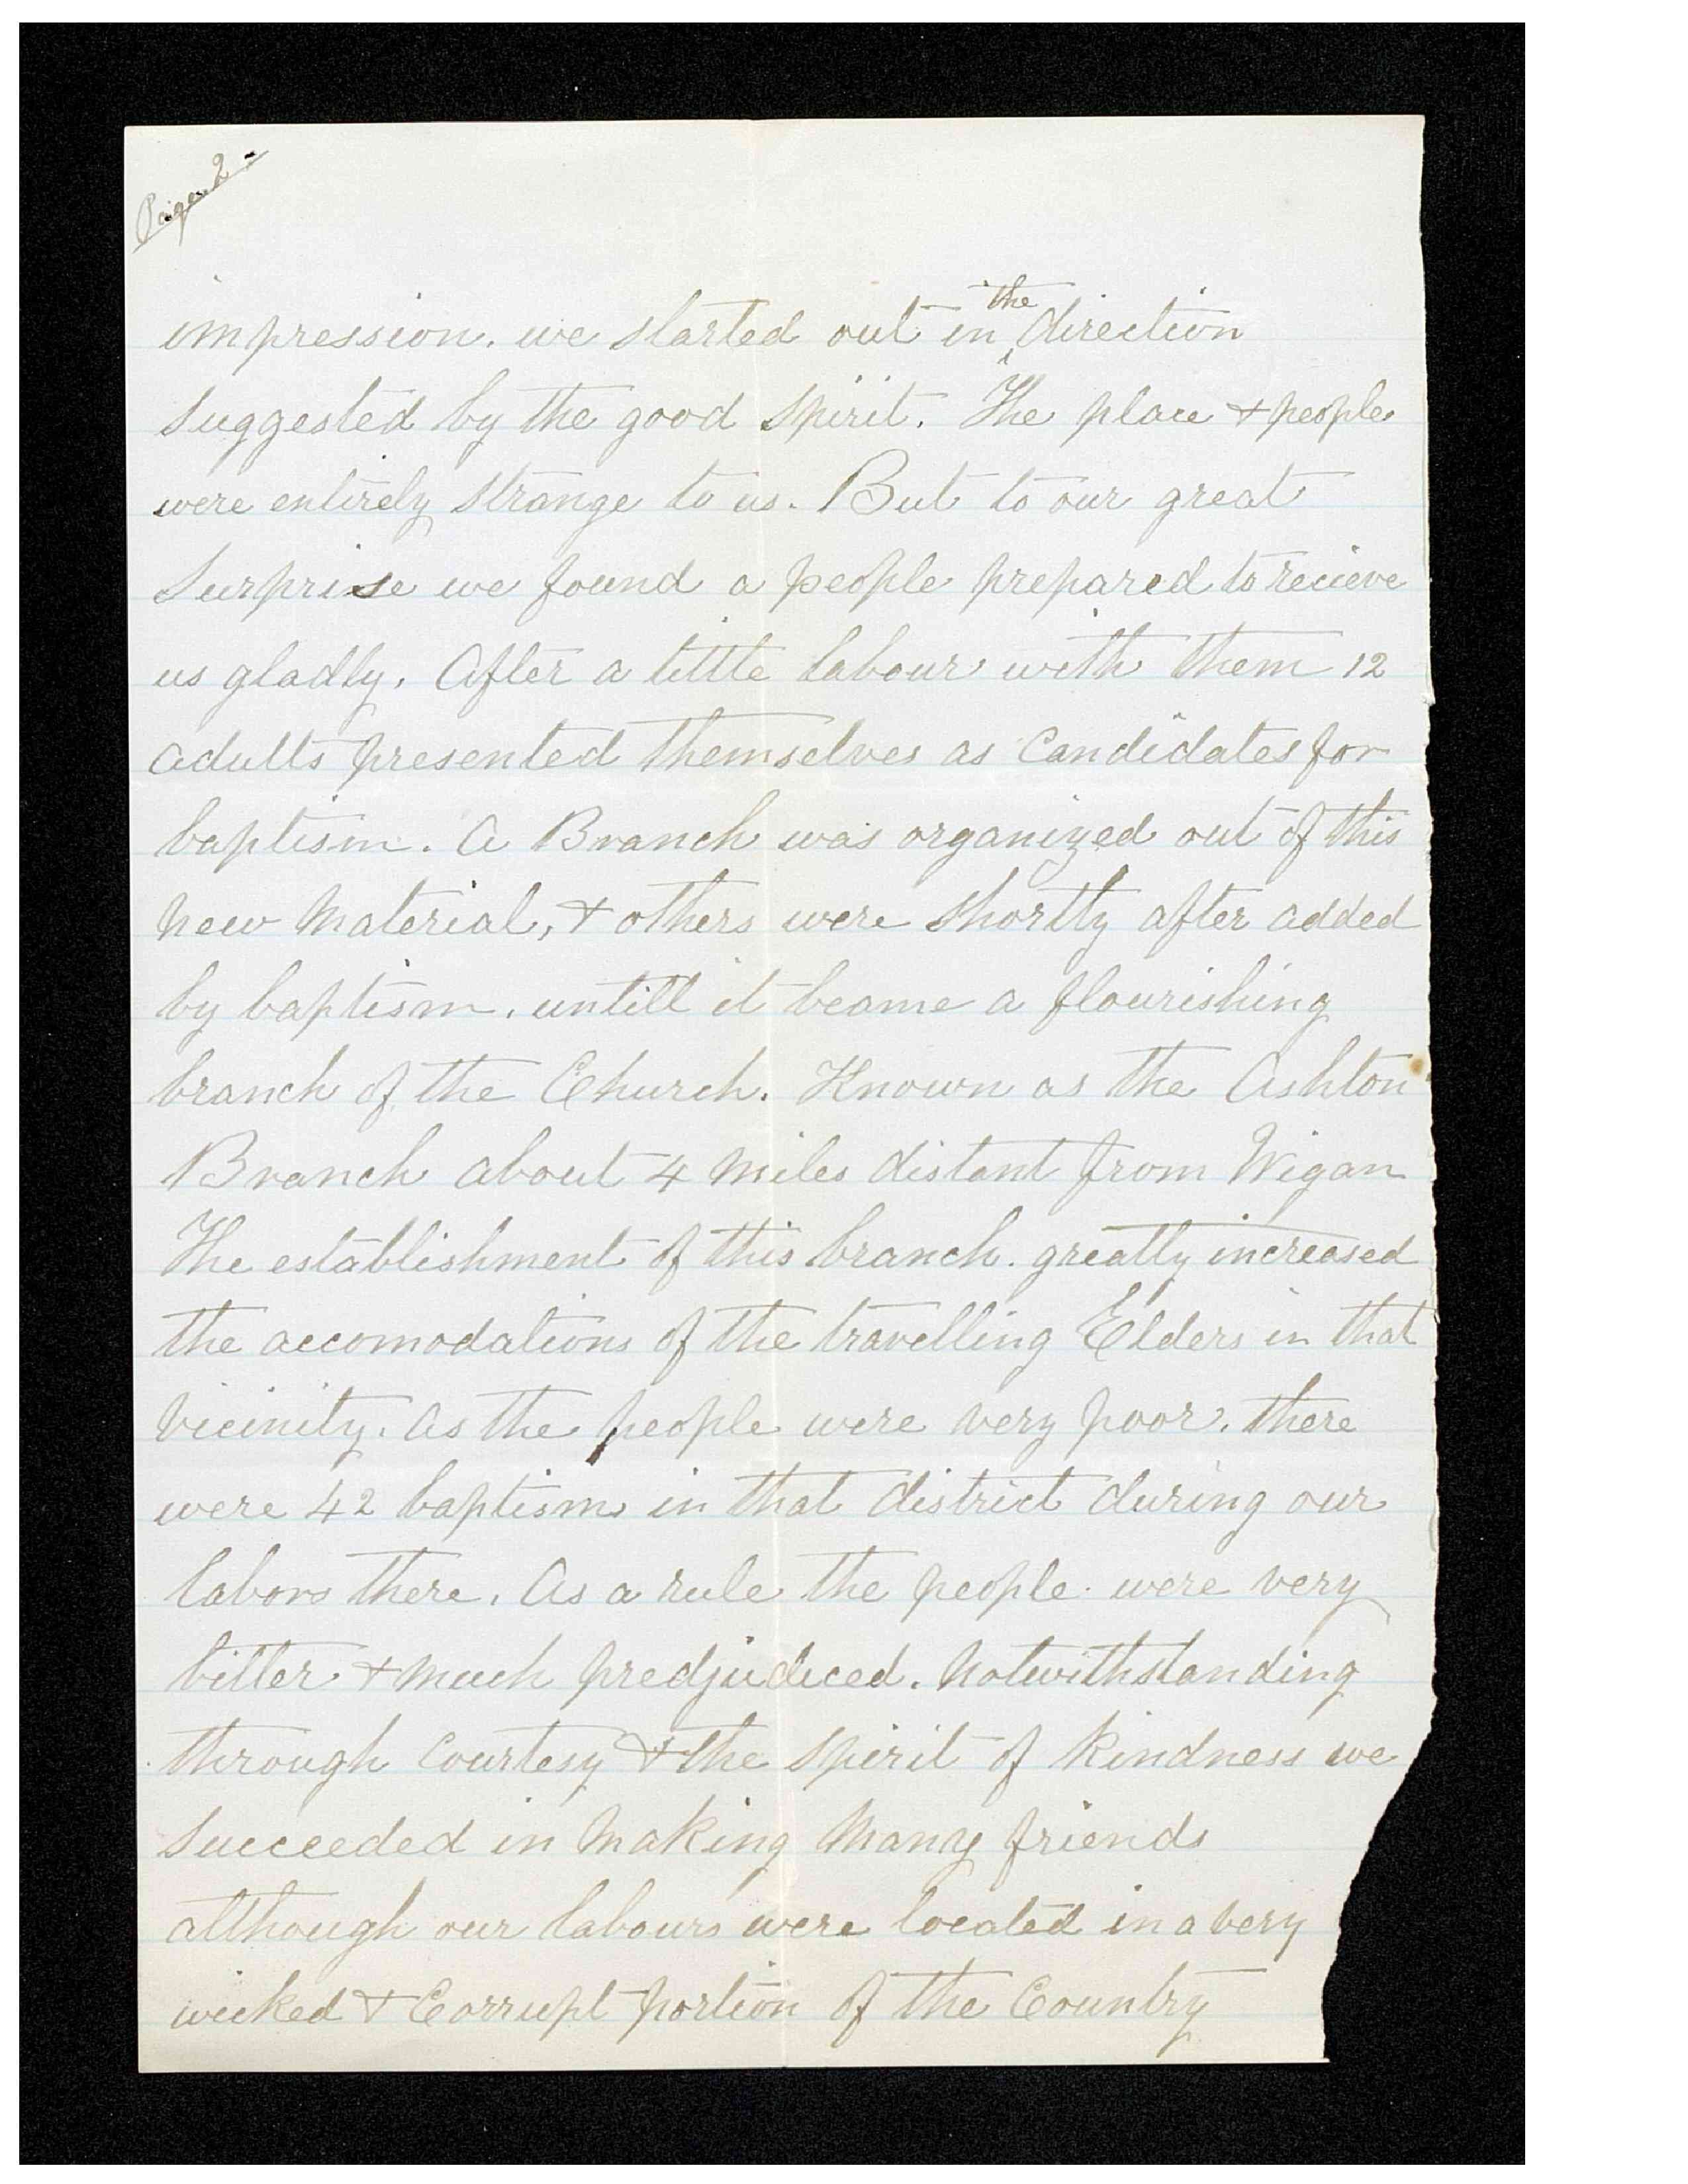 Page 2
impression. we started out in the direction
suggested by the good spirit. The place & people
were entirely strange to us. But to our great
surprise we found a people prepared to recieve
us gladly. After a little labour with them 12
adults presented themselves as Candidates for
baptism. A Branch was organized out of this
new material, & others were shortly after added
by baptism. untill it beame a flourishing
branch of the Church. Known as the Ashton
Branch about 4 miles distant from Wigan
The establishment of this branch. greatly increased
the accomodations of the travelling Elders in that
vicinity. as the people were very poor. there
were 42 baptisms in that district during our
labors there. As a rule the people were very
bitter & much predjudiced. notwithstanding
through courtesy & the spirit of kindness we
succeeded in making many friends
although our labours were located in a very
wicked & Corrupt portion of the Country